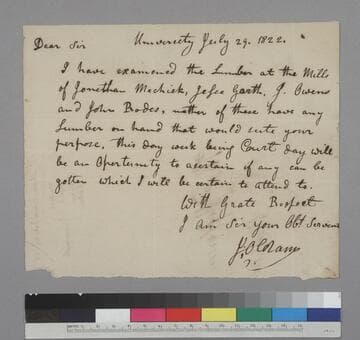 Dear Sir University July 29. 1822.
I have examined the Lumber at the Mills
of Jonathan Mechick, Jesse Garth, J. Owens
and John Rodes, nother of these have any
Lumber on hand that would sute your
perpose, this day week being Court day will
be an Opertunity to asertain if any can be
gotten which I will be certain to attend to.
With Grate Respect
I am Sir your Obt Servent
Js Oldham